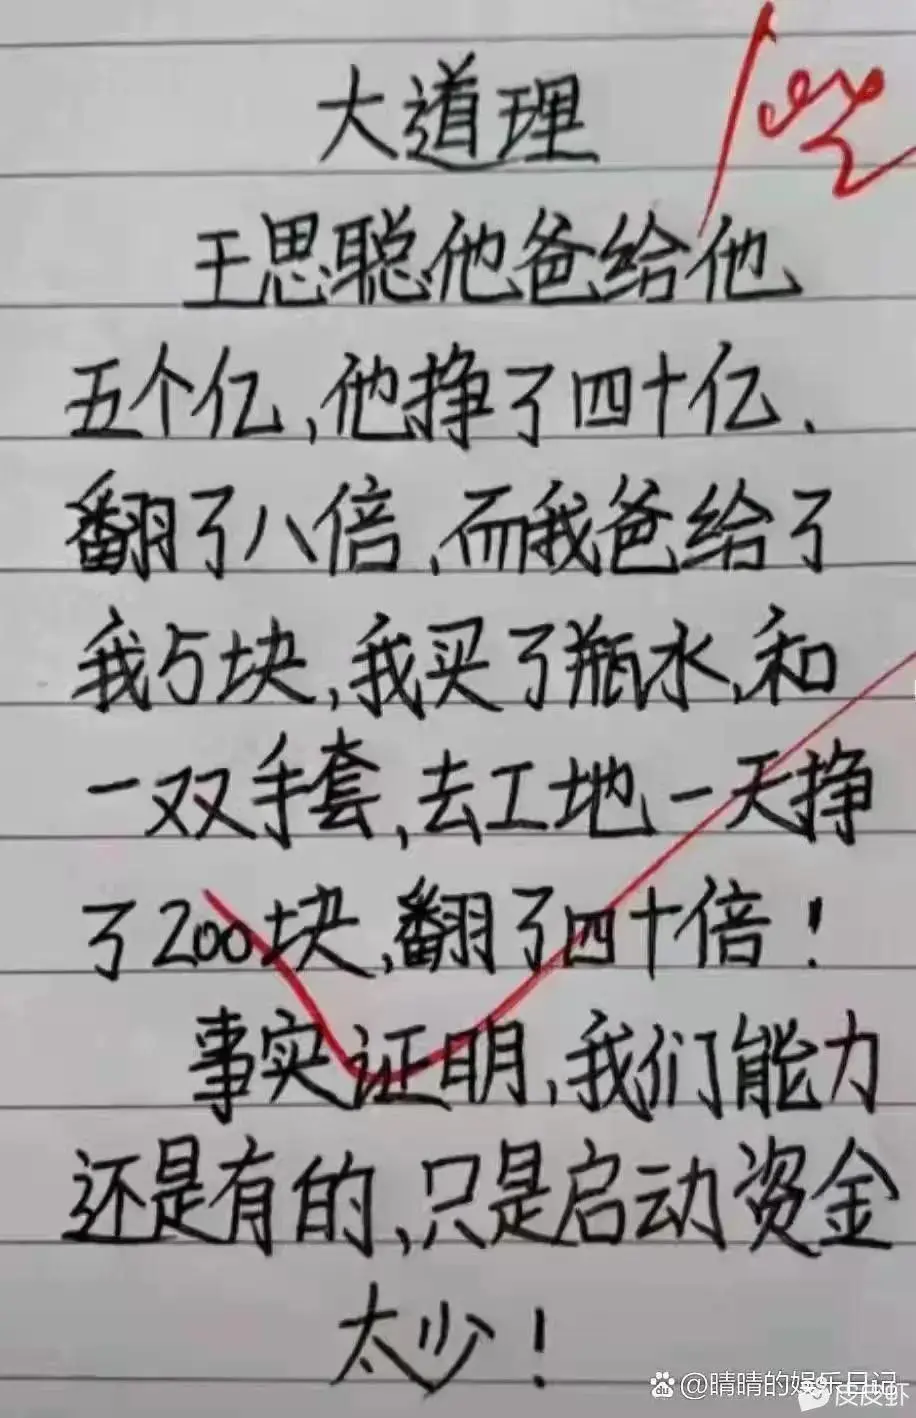 大道理
王思聪他爸给他
五个亿,他挣了四十亿.
翻了八倍,而我爸给了
我5块,我买了瓶水,和
一双手套,去工地一天挣
了200块,翻了四十倍!
事实证明,我们能力
还是有的,只是启动资金
太少!
@晴晴的娱乐日记
皮皮虾